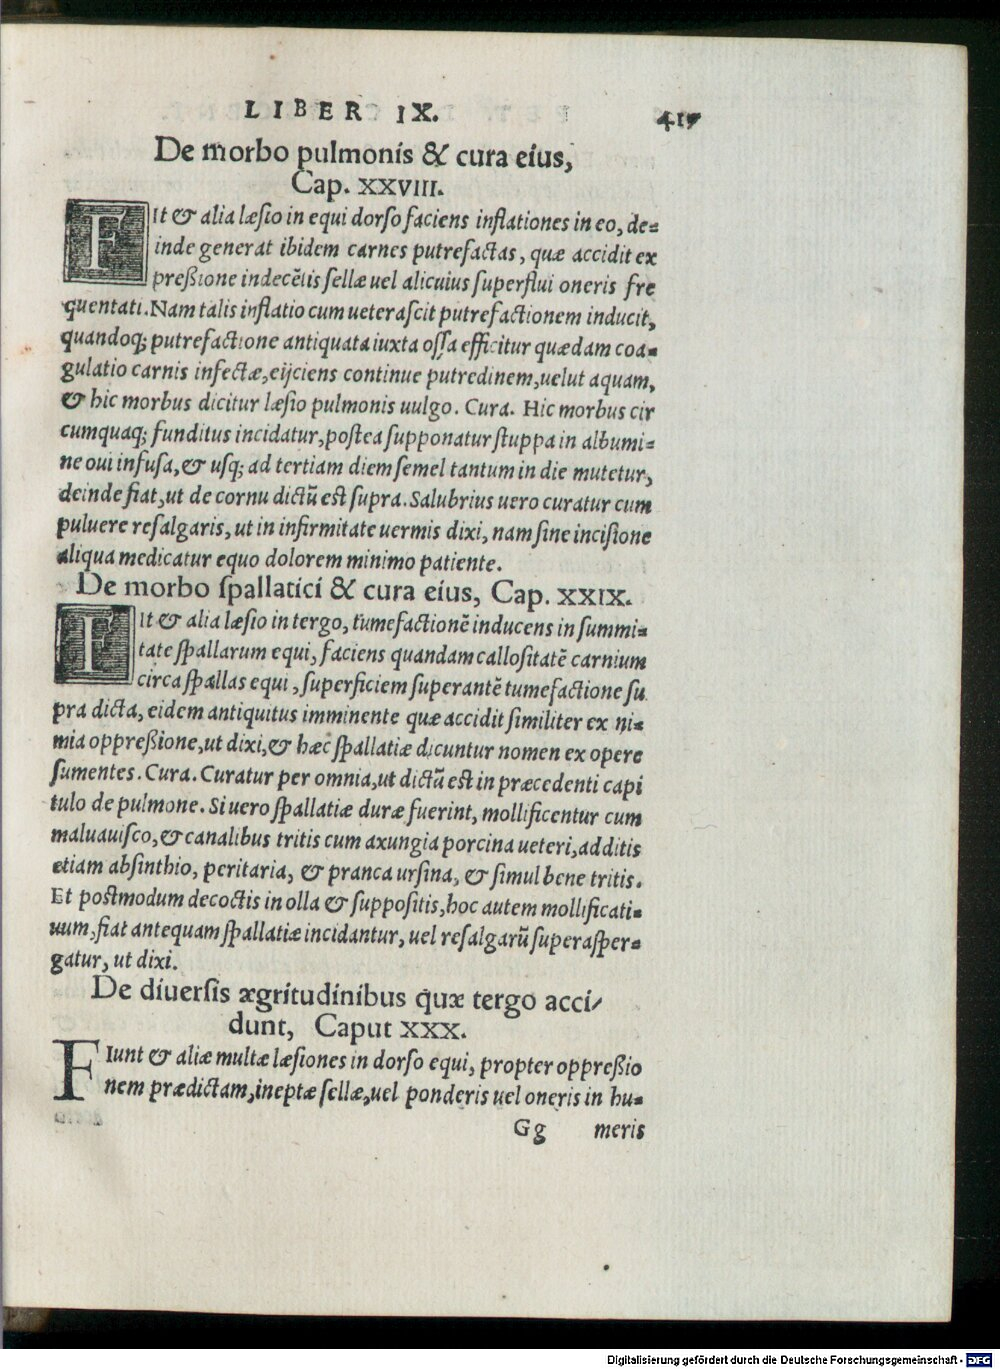 LIBER IX. 417
De morbo pulmonis & cura eius,
Cap. XXVIII.
FIt & alia læſio in equi dorſo faciens inflationes in eo, de=
inde generat ibidem carnes putrefactas, quæ accidit ex
preßione indecẽtis ſellæ uel alicuius ſuperflui oneris fre
quentati. Nam talis inflatio cum ueteraſcit putrefactionem inducit,
quandoq; putrefactione antiquata iuxta oſſa efficitur quædam coa=
gulatio carnis infectæ, eijciens continue putredinem, uelut aquam,
& hic morbus dicitur læſio pulmonis uulgo. Cura. Hic morbus cir
cumquaq; funditus incidatur, poſtea ſupponatur ſtuppa in albumi=
ne oui infuſa, & uſq; ad tertiam diem ſemel tantum in die mutetur,
deinde fiat, ut de cornu dictũ eſt ſupra. Salubrius uero curatur cum
puluere reſalgaris, ut in infirmitate uermis dixi, nam ſine inciſione
aliqua medicatur equo dolorem minimo patiente.
De morbo ſpallatici & cura eius, Cap. XXIX.
FIt & alia læſio in tergo, tumefactionẽ inducens in ſummi=
tate ſpallarum equi, faciens quandam calloſitatẽ carnium
circa ſpallas equi, ſuperficiem ſuperantẽ tumefactione ſu
pra dicta, eidem antiquitus imminente quæ accidit ſimiliter ex ni=
mia oppreßione, ut dixi, & hæc ſpallatiæ dicuntur nomen ex opere
ſumentes. Cura. Curatur per omnia, ut dictũ eſt in præcedenti capi
tulo de pulmone. Si uero ſpallatiæ duræ fuerint, mollificentur cum
maluauiſco, & canalibus tritis cum axungia porcina ueteri, additis
etiam abſinthio, peritaria, & pranca urſina, & ſimul bene tritis.
Et poſtmodum decoctis in olla & ſuppoſitis, hoc autem mollificati=
uum, fiat antequam ſpallatiæ incidantur, uel reſalgarũ ſuperaſper=
gatur, ut dixi.
De diuerſis ægritudinibus quæ tergo acci/
dunt, Caput XXX.
FIunt & aliæ multæ læſiones in dorſo equi, propter oppreßio
nem prædictam, ineptæ ſellæ, uel ponderis uel oneris in hu=
Gg meris
Digitalisierung gefördert durch die Deutsche Forschungsgemeinschaft - DFG